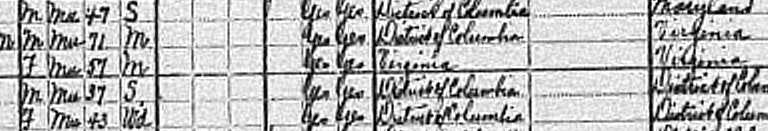 M Mu 47 S Yes Yes District of Columbia Maryland
M Mu 71 M Yes Yes District of Columbia Virginia
F Mu 57 M Yes Yes Virginia Virginia
M Mu 37 S Yes Yes District of Columbia District of Colum
F Mu 43 Wd Yes Yes District of Columbia District of Colum